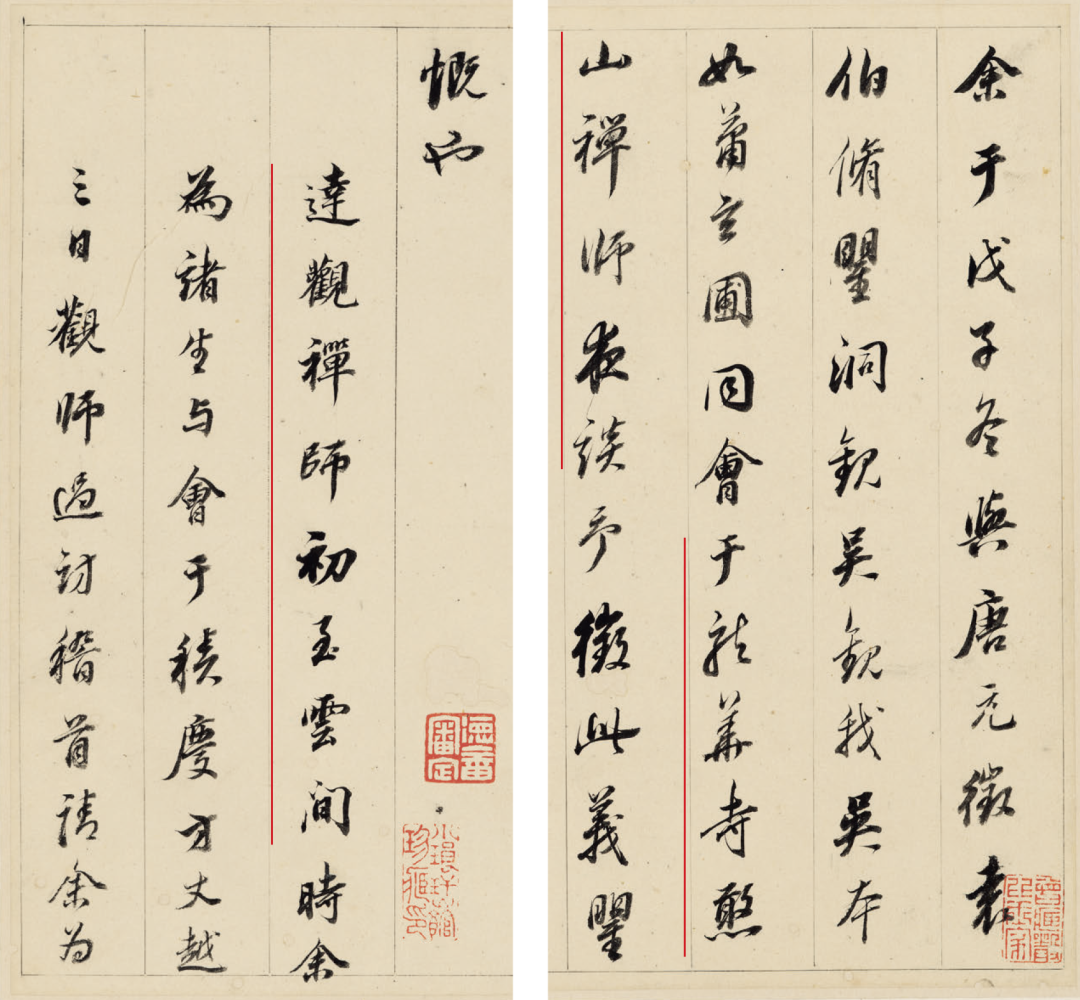 余于戊子冬與唐元徵袁
伯脩瞿洞觀吳觀我吳本
如蕭玄圃同會于龍華寺憨
山禪師夜談予徵此義瞿
慨也
達觀禪師初至雲間時余
為諸生与會于積慶方丈越
三日觀師過訪稽首請余为